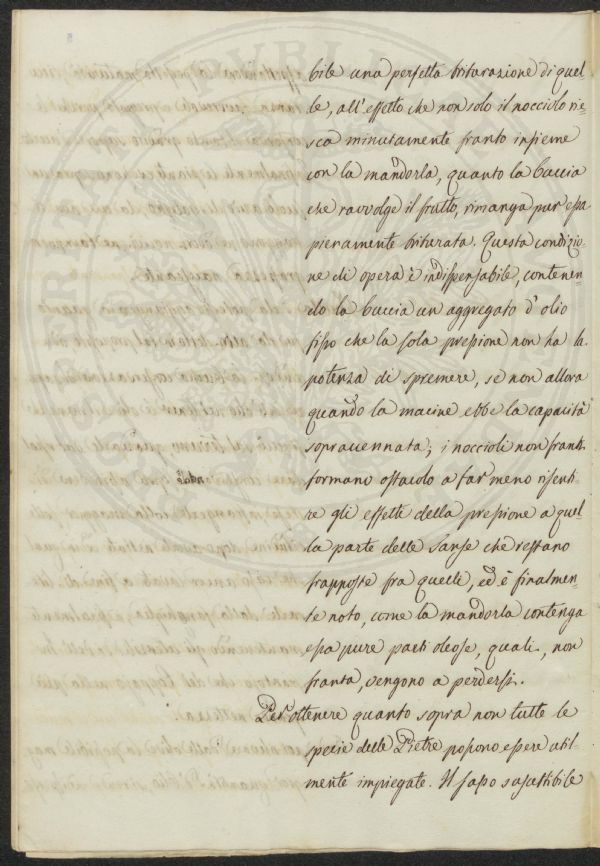 bile una perfetta triturazione di quel=
le, all'effetto che non solo il nocciolo rie=
sca minutamente franto insieme
con la mandorla, quanto la buccia
che ravvolge il frutto, rimanga pur essa
pienamente triturata. Questa condizio=
ne di opera è indispensabile, contenen=
do la buccia un aggregato d'olio
fisso che la sola pressione non ha la
potenza di spremere, se non allora
quando la macine ebbe la capacità
sopraccennata; i noccioli non franti
formano ostacolo a far meno risenti=
re gli effetti della pressione a quel=
la parte delle Sanse che restano
frapposte fra quelli, ed è finalmen=
te noto, come la mandorla contenga
essa pure parti oleose, quali, non
franta, vengono a perdersi.
Per ottenere quanto sopra non tutte le
specie delle Pietre possono essere util=
mente impiegate. Il sasso